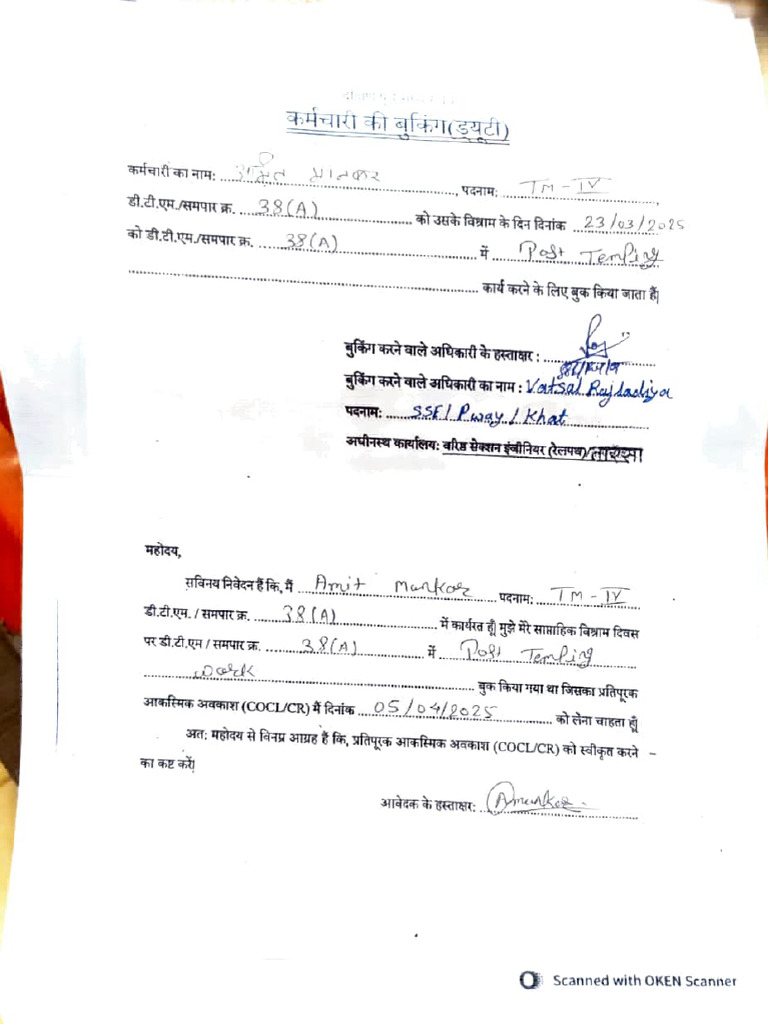 कर्मचारी की बुकिंग(ड्यूटी)
कर्मचारी का नाम: अमित मानकर, पदनाम: TM-IV,
डी.टी.एम./समपार क्र. 38(A) को उसके विश्राम के दिन दिनांक 23/03/2025
को डी.टी.एम./समपार क्र. 38(A) में Post Temping
कार्य करने के लिए बुक किया जाता हैं|
बुकिंग करने वाले अधिकारी के हस्ताक्षर :
बुकिंग करने वाले अधिकारी का नाम : Vatsal Rajdadiya
पदनाम: SSE/ P.way / Khat
अधीनस्थ कार्यालय: वरिष्ठ सेक्शन इंजीनियर (रेलपथ)/
महोदय,
सविनय निवेदन हैं कि, मैं Amit Mankar पदनाम: TM-IV
डी.टी.एम. / समपार क्र. 38(A) में कार्यरत हूँ| मुझे मेरे साप्ताहिक विश्राम दिवस
पर डी.टी.एम / समपार क्र. 38(A) में Post Temping
work बुक किया गया था जिसका प्रतिपूरक
आकस्मिक अवकाश (COCL/CR) मैं दिनांक 05/04/2025 को लेना चाहता हूँ|
अत: महोदय से विनम्र आग्रह हैं कि, प्रतिपूरक आकस्मिक अवकाश (COCL/CR) को स्वीकृत करने
का कष्ट करें|
आवेदक के हस्ताक्षर: Amankar
Scanned with OKEN Scanner